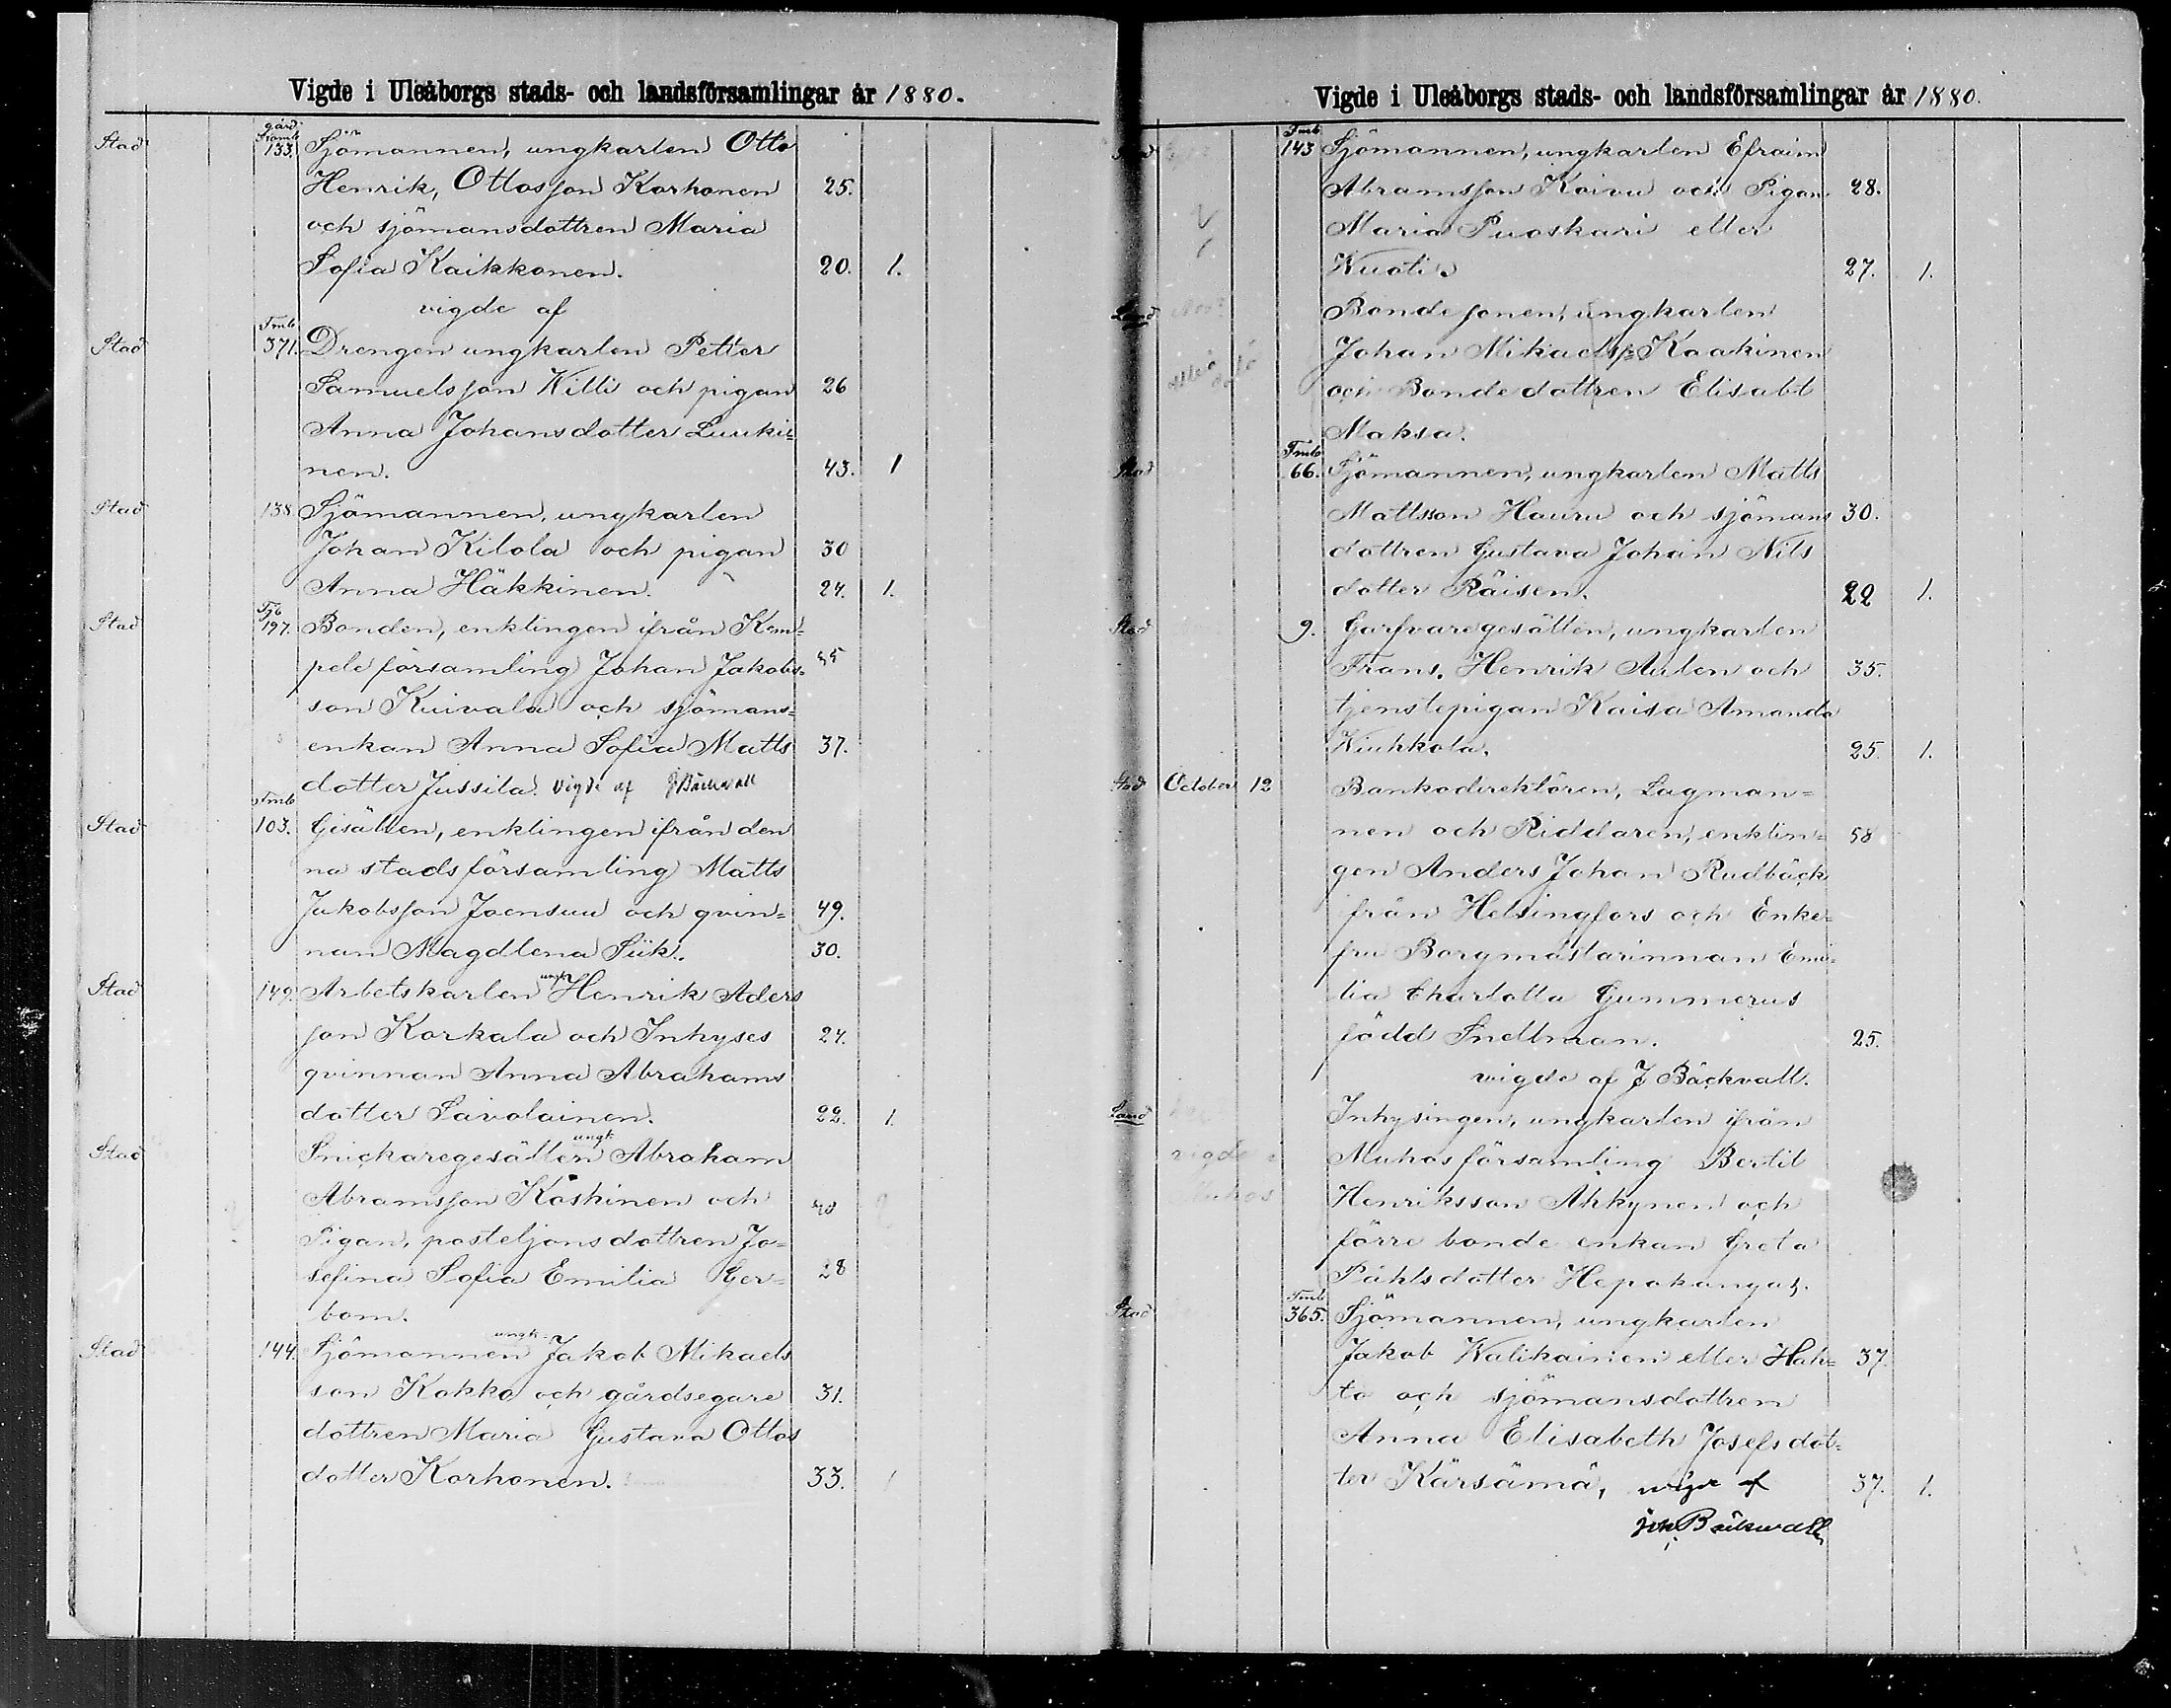 Vigde i Uleåborgs stads- och landsförsamlingar år 1880.
gård
Stad 133. Sjömannen, ungkarlen Otto
Henrik, Ottosson Korhonen 25.
och sjömansdottren Maria
Sofia Kaikkonen. 20. 1.
vigde af
Tmb
Stad 371. Drengen ungkarlen Petter
Samuelsson Willi och pigan 26
Anna Johansdotter Luuki=
nen. 43. 1
Stad 138 Sjömannen, ungkarlen
Johan Kilola och pigan 30
Anna Häkkinen. 24. 1.
Stad 197. Bonden, enklingen ifrån Kem=
pele församling Johan Jakobs=
son Kuivala och sjömans=
enkan Anna Sofia Matts 37.
dotter Jussila. Vigde af J Bäckvall
Tmb
Stad 103. Gesällen, enklingen ifrån den
na stads församling Matts
Jakobsson Joensuu och qvin= 49.
nan Magdlena Siik. 30.
ungk
Stad 149. Arbetskarlen Henrik Aders
son Korkala och Inhyses 24.
qvinnan Anna Abrahams
dotter Savolainen. 22. 1.
ungk.
Stad Snickaregesällen Abraham
Abramsson Koskinen och
Pigan, posteljons dottren Jo=
sefina Sofia Emilia Ger= 28
bom.
ungk.
Stad 144. Sjömannen Jakob Mikaels
son Kokko och gårdsegare 31.
dottren Maria Gustava Ottos
dotter Korhonen. 33. 1
Vigde i Uleåborgs stads- och landsförsamlingar år 1880.
Tmb
Stad 143 Sjömannen, ungkarlen Efraim
Abramsson Koivu och Pigan 28.
Maria Puoskari eller
Wuoti. 27. 1.
Land Bondesonen, ungkarlen
Johan Mikaels: Kaakinen
och Bondedottren Elisabt
Maksa.
Tmb
Stad 66. Sjömannen, ungkarlen Matts
Mattsson Hauru och sjömans 30.
dottren Gustava Johan Nils
dotter Räisen. 22 1.
Stad 9. Garfvaregesällen, ungkarlen
Frans. Henrik Aulen och 35.
tjenstepigan Kaisa Amanda
Wiuhkola. 25. 1.
Stad October 12 Bankodirektören, Lagman=
nen och Riddaren, enklin= 58
gen Anders Johan Rudbäck
från Helsingfors och Enke=
fru Borgmästarinnan Emi=
lia Charlotta Gummerus
född Snellman. 25.
vigde af J Bäckvall.
Land Inhysingen, ungkarlen ifrån
vigde i Muhos församling Bertil
Muhos Henriksson Ahkynen och
förre bonde enkan Greta
Påhlsdotter Hepokangas.
Tmb
Stad 365. Sjömannen, ungkarlen
Jakob Walikainen eller Hah= 37
to och sjömansdottren
Anna Elisabeth Josefsdot=
ter Kärsämä, vigde af 37. 1.
Joh. Bäckvall